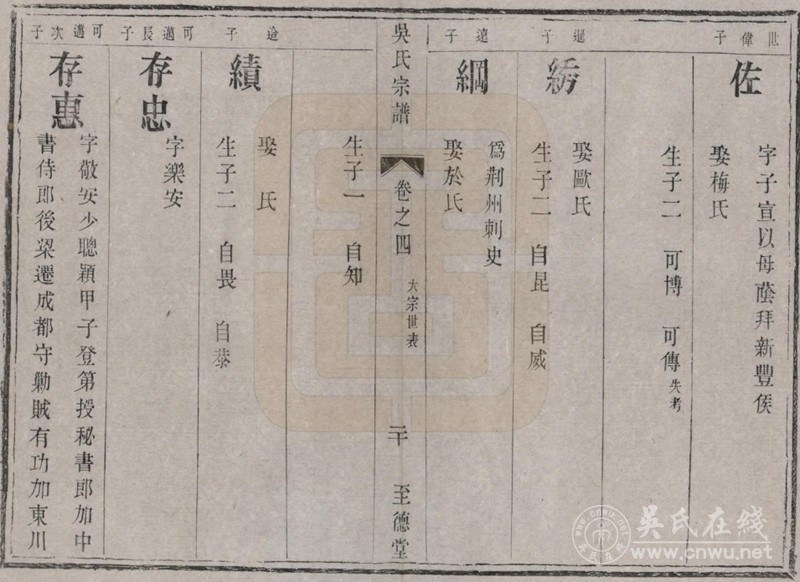 世偉子
佐
字子宣以母蔭拜新豐侯
娶梅氏
生子二　可博　可傳失考
暹子
紡
娶歐氏
生子二　自昆　自威
遠子
綱
為荊州刺史
娶於氏
吳氏宗譜
卷之四
大宗世表
二十
至德堂
生子一　自知
子
績
娶　氏
生子二　自畏　自㳟
可邁長子
存忠
字樂安
可邁次子
存惠
字敬安少聰穎甲子登第授秘書郎加中
書侍郎後梁遷成都守勦賊有功加東川
吳氏在线
www.cnwu.net